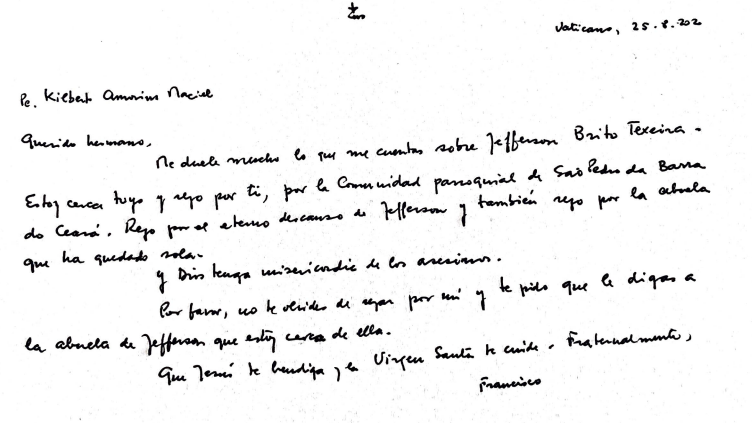 Vaticano, 25.8.2020
Pe. Kilbert Amorim Maciel
Querido hermano,
Me duele mucho lo que me cuentas sobre Jefferson Brito Texeira.
Estoy cerca tuyo y rezo por ti, por la Comunidad parroquial de São Pedro da Barra
do Ceará. Rezo por el eterno descanso de Jefferson y también rezo por la abuela
que ha quedado sola.
y Dios tenga misericordia de los asesinos.
Por favor, no te olvides de rezar por mí y te pido que le digas a
la abuela de Jefferson que estoy cerca de ella.
Que Jesús te bendiga y la Virgen Santa te cuide. Fraternalmente,
Francisco